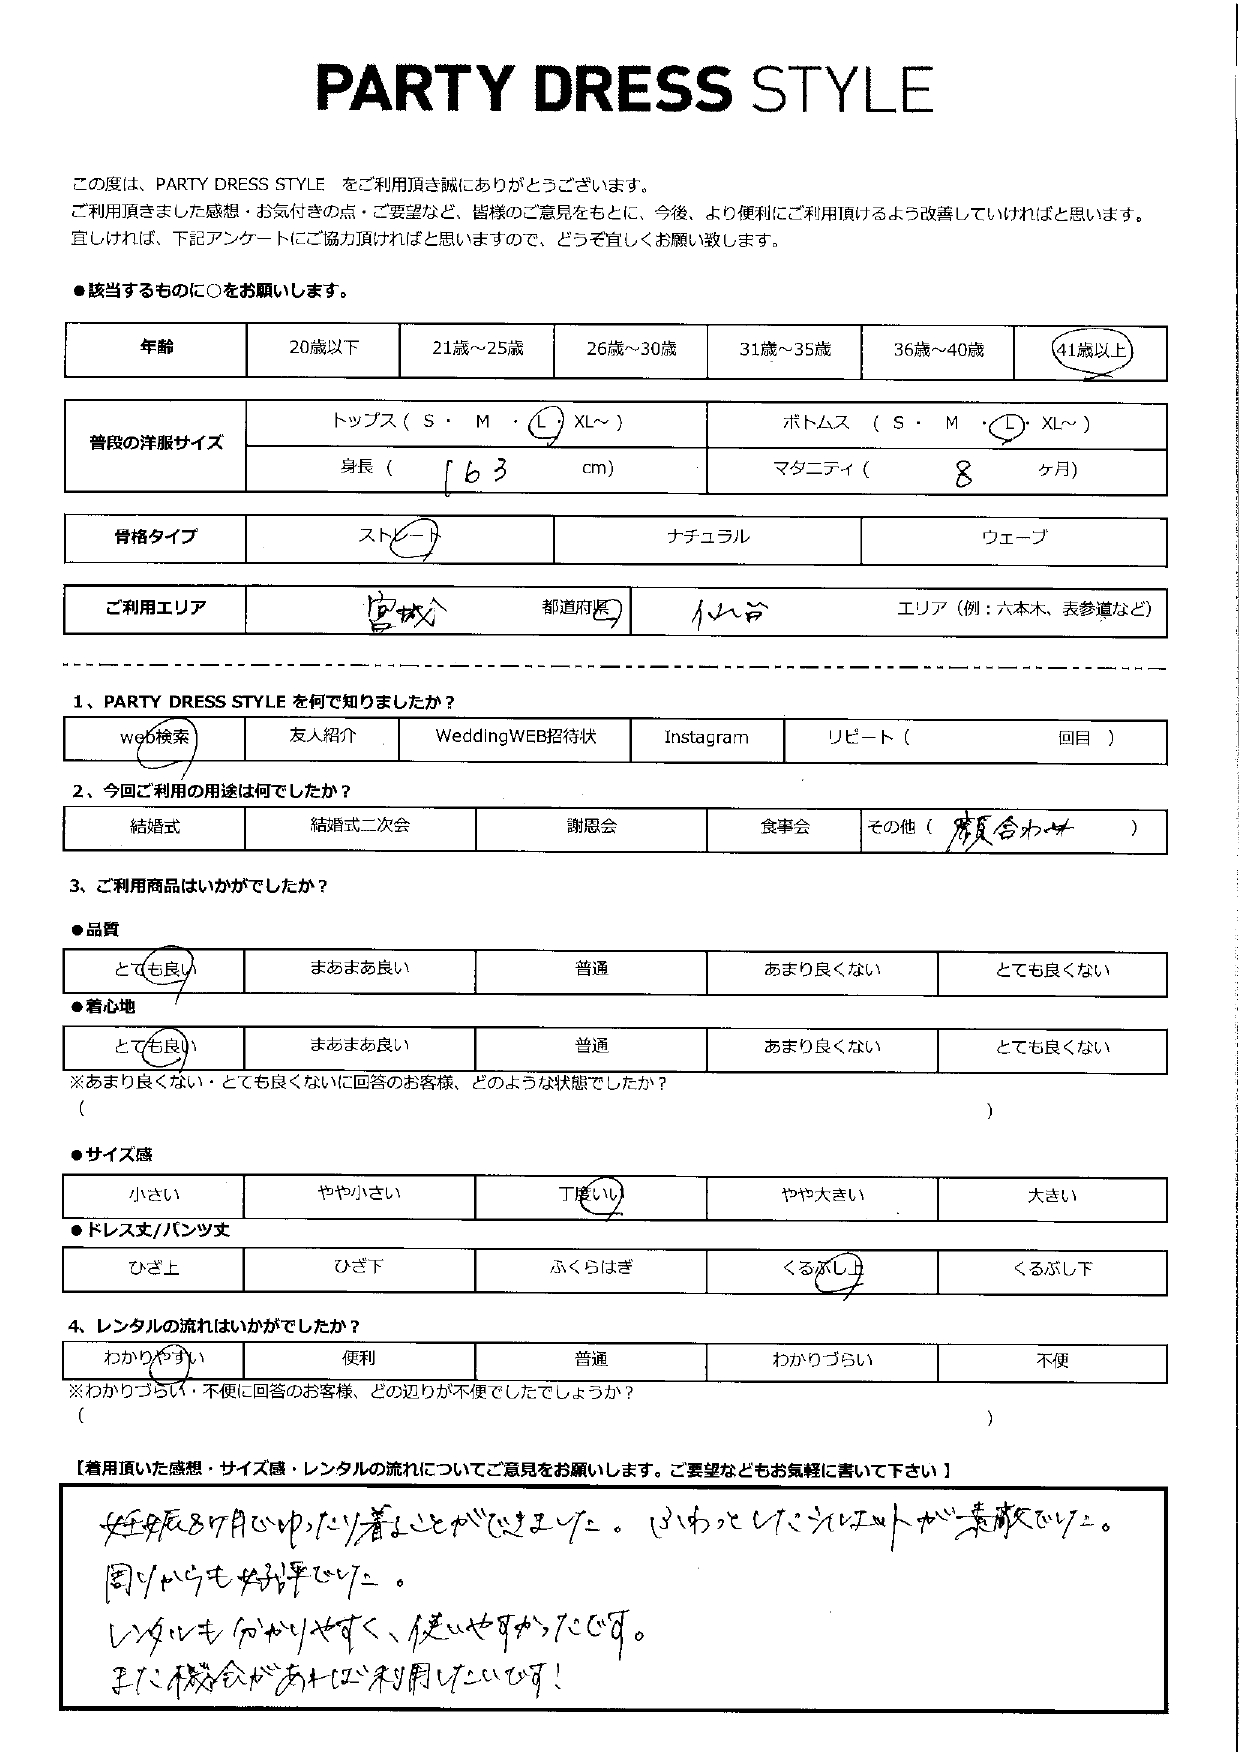 PARTY DRESS STYLE
この度は、PARTY DRESS STYLE　をご利用頂き誠にありがとうございます。
ご利用頂きました感想・お気付きの点・ご要望など、皆様のご意見をもとに、今後、より便利にご利用頂けるよう改善していければと思います。
宜しければ、下記アンケートにご協力頂ければと思いますので、どうぞ宜しくお願い致します。
●該当するものに○をお願いします。
年齢 20歳以下 21歳～25歳 26歳～30歳 31歳～35歳 36歳～40歳 41歳以上
普段の洋服サイズ トップス ( S ・ M ・ L ・ XL～ ) ボトムス ( S ・ M ・ L ・ XL～ )
身長 ( 163 cm) マタニティ ( 8 ヶ月)
骨格タイプ ストレート ナチュラル ウェーブ
ご利用エリア 宮城 都道府県 仙台 エリア（例：六本木、表参道など）
1、PARTY DRESS STYLE を何で知りましたか？
web検索 友人紹介 WeddingWEB招待状 Instagram リピート ( 回目 )
2、今回ご利用の用途は何でしたか？
結婚式 結婚式二次会 謝恩会 食事会 その他 ( 顔合わせ )
3、ご利用商品はいかがでしたか？
●品質
とても良い まあまあ良い 普通 あまり良くない とても良くない
●着心地
とても良い まあまあ良い 普通 あまり良くない とても良くない
※あまり良くない・とても良くないに回答のお客様、どのような状態でしたか？
( )
●サイズ感
小さい やや小さい 丁度いい やや大きい 大きい
●ドレス丈/パンツ丈
ひざ上 ひざ下 ふくらはぎ くるぶし上 くるぶし下
4、レンタルの流れはいかがでしたか？
わかりやすい 便利 普通 わかりづらい 不便
※わかりづらい・不便に回答のお客様、どの辺りが不便でしたでしょうか？
( )
【着用頂いた感想・サイズ感・レンタルの流れについてご意見をお願いします。ご要望などもお気軽に書いて下さい】
妊娠8ヶ月でゆったり着ることができました。ふわっとしたシルエットが素敵でした。
周りからも好評でした。
レンタルも分かりやすく、使いやすかったです。
また機会があればご利用したいです！